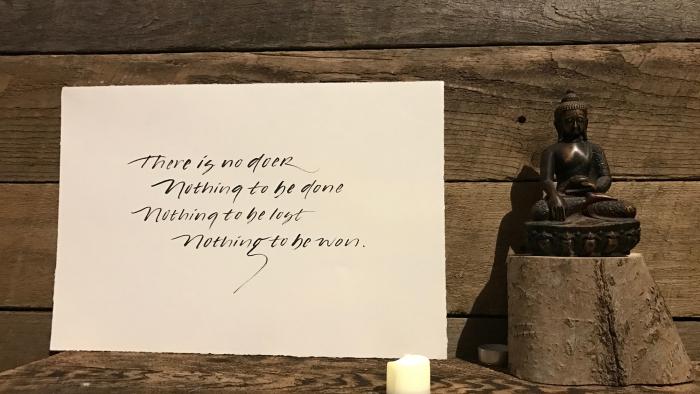 There is no doer
Nothing to be done
Nothing to be lost
Nothing to be won.